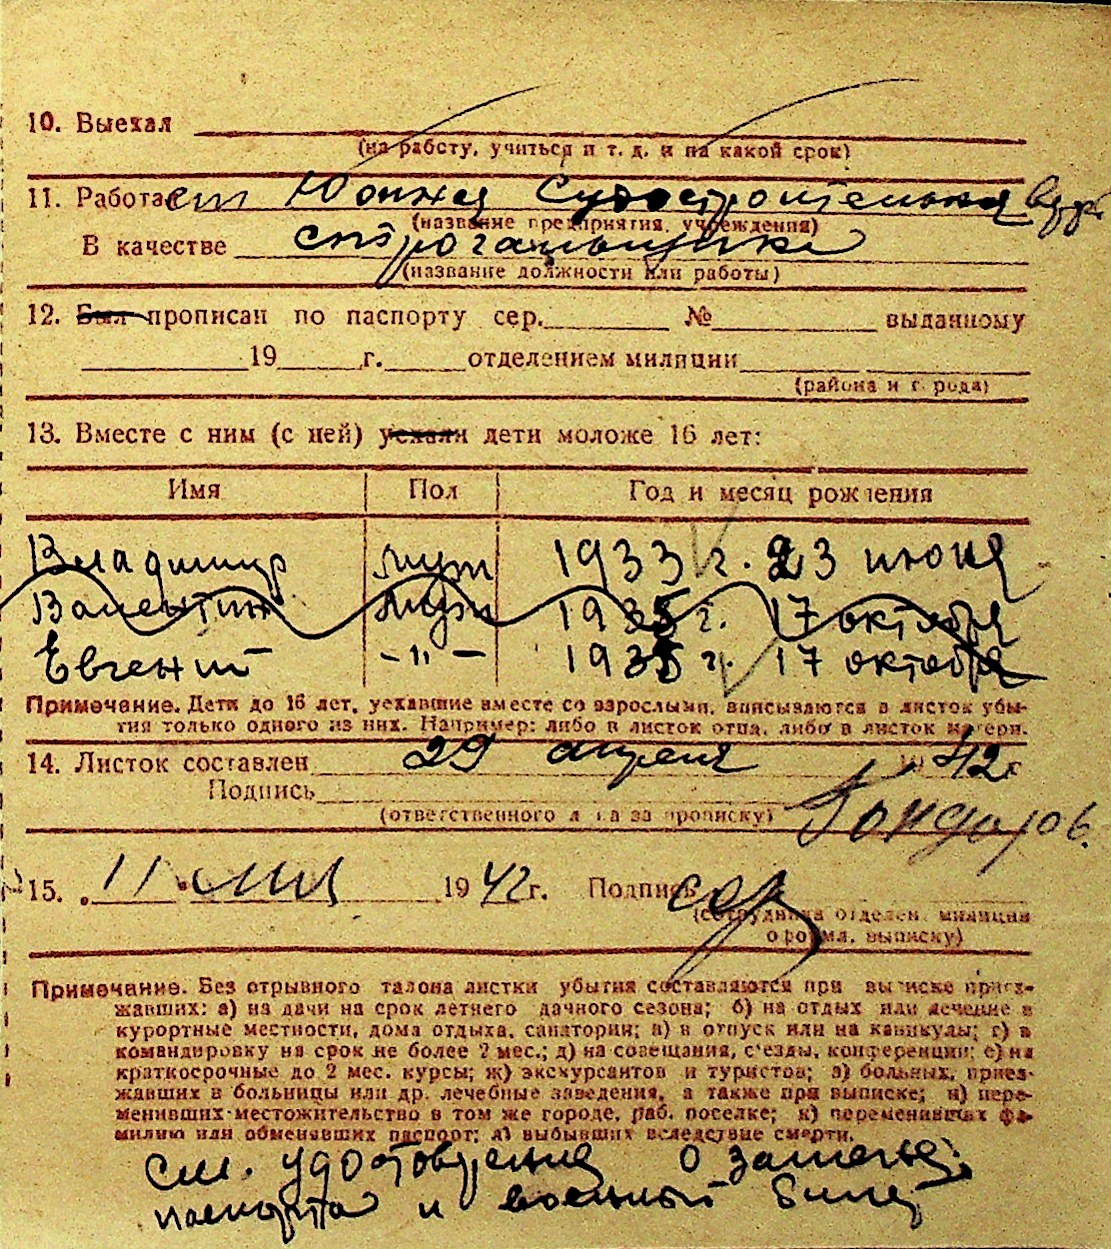 10. Выехал
(на работу, учиться и т. д. и на какой срок)
11. Работает Южная Судостроительная верфь
(название предприятия, учреждения)
В качестве строгальщика
(название должности или работы)
12. Был прописан по паспорту сер. № выданному
19 г. отделением милиции
(района и города)
13. Вместе с ним (с ней) уехали дети моложе 16 лет:
Имя Пол Год и месяц рождения
Владимир муж 1933 г. 23 июня
Валентин муж 1935 г. 17 октября
Евгений -"- 1935 г. 17 октября
Примечание. Дети до 16 лет, уехавшие вместе со взрослыми, вписываются в листок убы-
тия только одного из них. Например: либо в листок отца, либо в листок матери.
14. Листок составлен 29 апреля 19 42 г
Подпись
(ответственного лица за прописку)
15. „11" мая 1942 г. Подпись
(сотрудника отделен. милиции
оформл. выписку)
Примечание. Без отрывного талона листки убытия составляются при выписке приез-
жавших: а) на дачи на срок летнего дачного сезона; б) на отдых или лечение в
курортные местности, дома отдыха, санатории; в) в отпуск или на каникулы; г) в
командировку на срок не более 2 мес.; д) на совещания, с'езды, конференции; е) на
краткосрочные до 2 мес. курсы; ж) экскурсантов и туристов; з) больных, приез-
жавших в больницы или др. лечебные заведения, а также при выписке; и) пере-
менивших местожительство в том же городе, раб. поселке; к) переменивших фа-
милию или обменявших паспорт; л) выбывших вследствие смерти.
см. удостоверение о замене
паспорта и военный билет